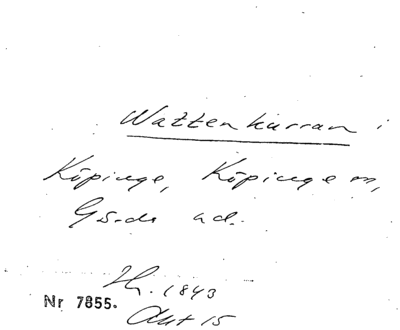 Wattenkurran i
Köpinge, Köpinge sn,
Gärds hd.
1843
Nr 7855.
Akt 15